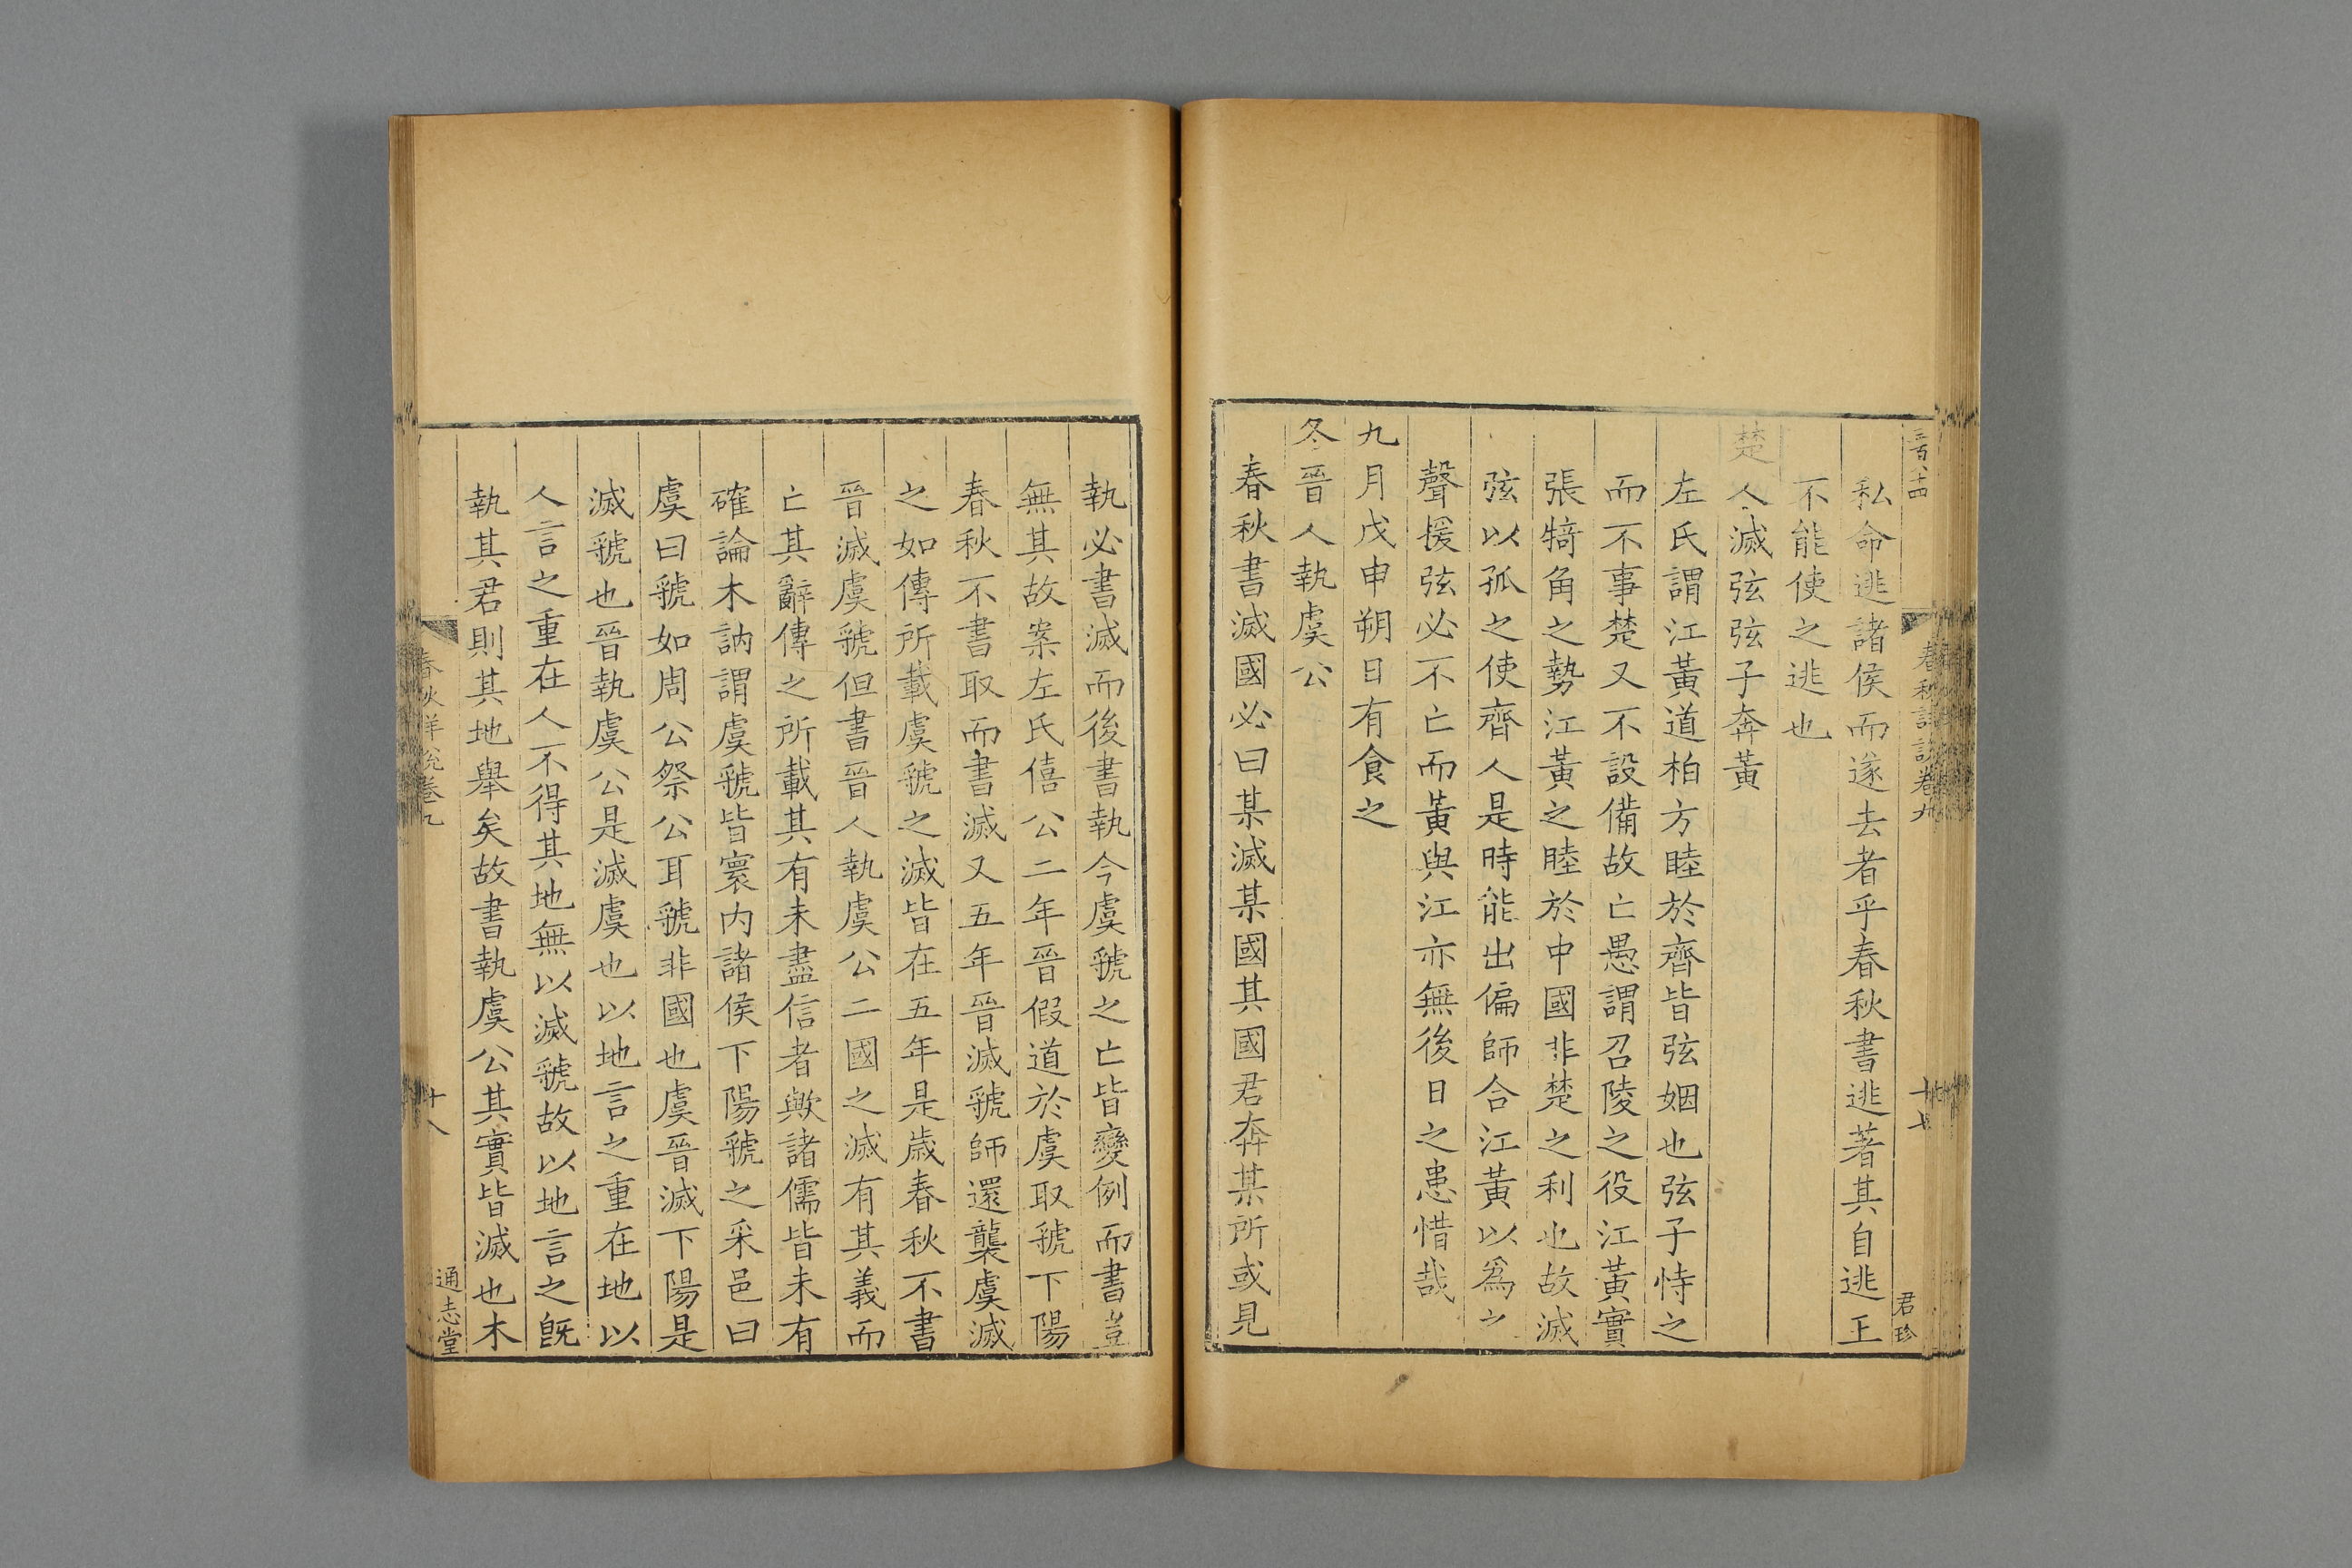 三百八十四
春秋詳說卷九
十七
君珍
私命逃諸侯而遂去者乎春秋書逃著其自逃王
不能使之逃也
楚人滅弦弦子奔黃
左氏謂江黃道柏方睦於齊皆弦姻也弦子恃之
而不事楚又不設備故亡愚謂召陵之役江黃實
張犄角之勢江黃之睦於中國非楚之利也故滅
弦以孤之使齊人是時能出偏師合江黃以為之
聲援弦必不亡而黃與江亦無後日之患惜哉
九月戊申朔日有食之
冬晉人執虞公
春秋書滅國必曰某滅某國其國君奔某所或見
執必書滅而後書執今虞虢之亡皆變例而書豈
無其故案左氏僖公二年晉假道於虞取虢下陽
春秋不書取而書滅又五年晉滅虢師還襲虞滅
之如傳所載虞虢之滅皆在五年是歲春秋不書
晉滅虞虢但書晉人執虞公二國之滅有其義而
亡其辭傳之所載其有未盡信者歟諸儒皆未有
確論木訥謂虞虢皆寰內諸侯下陽虢之采邑曰
虞曰虢如周公祭公耳虢非國也虞晉滅下陽是
滅虢也晉執虞公是滅虞也以地言之重在地以
人言之重在人不得其地無以滅虢故以地言之旣
執其君則其地舉矣故書執虞公其實皆滅也木
春秋詳說卷九
十八
通志堂